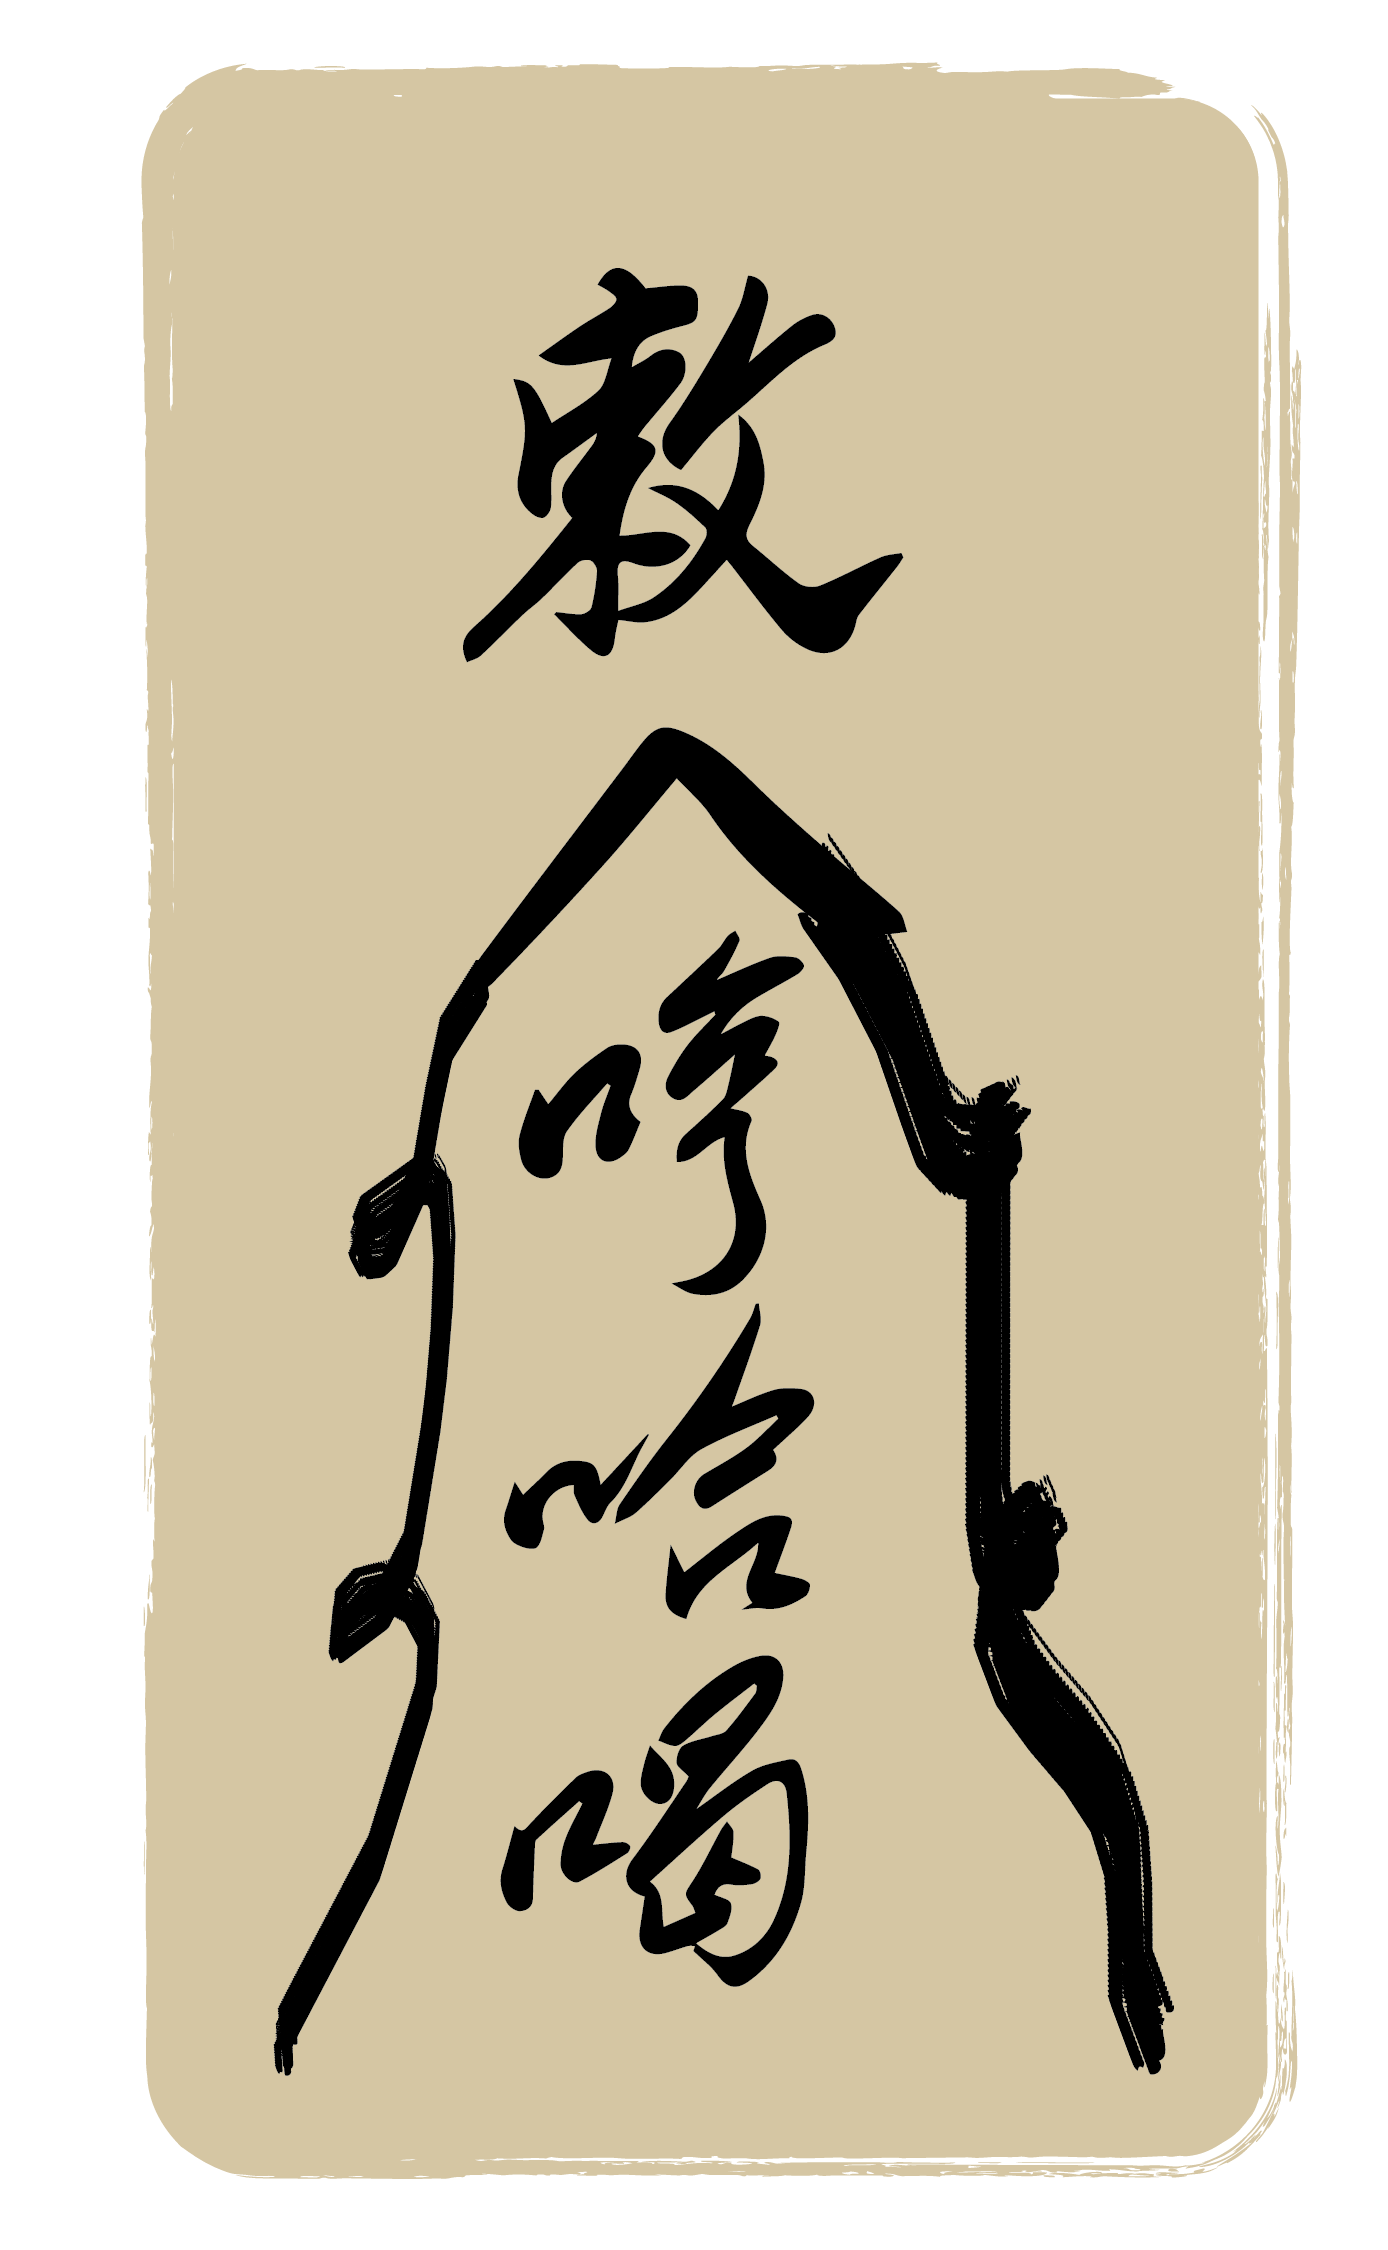 敕
哼
哈
喝